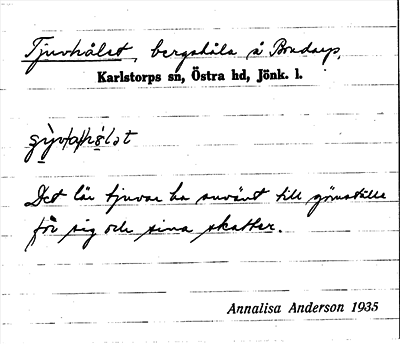 Tjuvhålet, bergshåla å Brudarp,
Karlstorps sn, Östra hd, Jönk. l.
Det lär tjuvar ha använt till gömställe
för sig och sina skatter.
Annalisa Anderson 1935